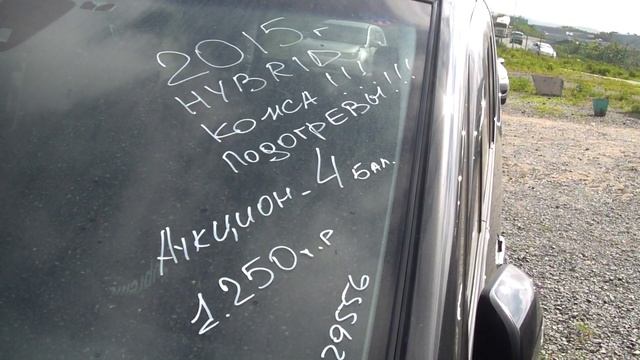 2015г
HYBRID
КОЖА!!!
ПОДОГРЕВЫ!!!
АУКЦИОН-4 БАЛ.
1.250 т.р
29556